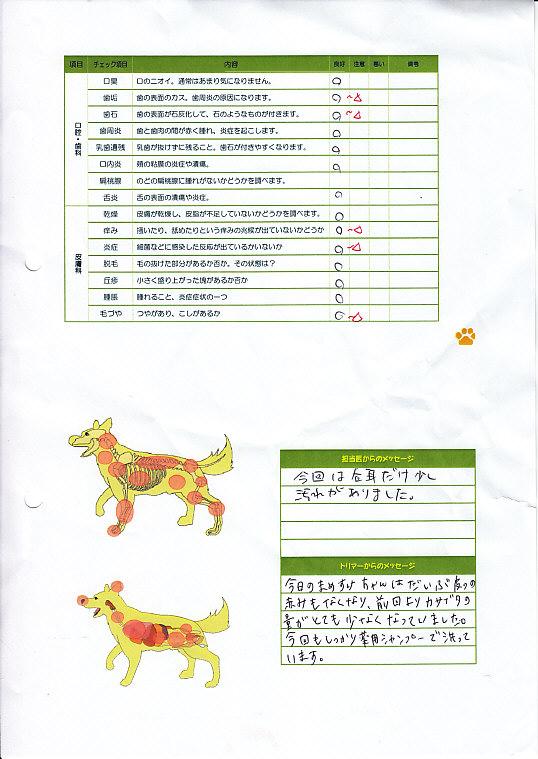 項目 チェック項目 内容 良好 注意 悪い 備考
口腔・歯科
口臭 口のニオイ。通常はあまり気になりません。 ○
歯垢 歯の表面のカス。歯周炎の原因になります。 ○ ～△
歯石 歯の表面が石灰化して、石のようなものが付きます。 ○ ～△
歯周炎 歯と歯肉の間が赤く腫れ、炎症を起こします。 ○
乳歯遺残 乳歯が抜けずに残ること。歯石が付きやすくなります。 ○
口内炎 頬の粘膜の炎症や潰瘍。 ○
扁桃腺 のどの扁桃腺に腫れがないかどうかを調べます。
舌炎 舌の表面の潰瘍や炎症。 ○
皮膚科
乾燥 皮膚が乾燥し、皮脂が不足していないかどうかを調べます。 ○
痒み 掻いたり、舐めたりという痒みの兆候が出ていないかどうか ○ ～△
炎症 細菌などに感染した反応が出ているかいないか ○ ～△
脱毛 毛の抜けた部分があるか否か。その状態は？ ○
丘疹 小さく盛り上がった塊があるか否か ○
腫脹 腫れること、炎症症状の一つ ○
毛づや つやがあり、こしがあるか ○ ～△
担当医からのメッセージ
今回は左耳だけ少し
汚れがありました。
トリマーからのメッセージ
今日のまめすけちゃんはだいぶ皮フの
赤みもなくなり、前回よりカサブタの
量がとても少なくなっていました。
今回もしっかり薬用シャンプーで洗って
います。